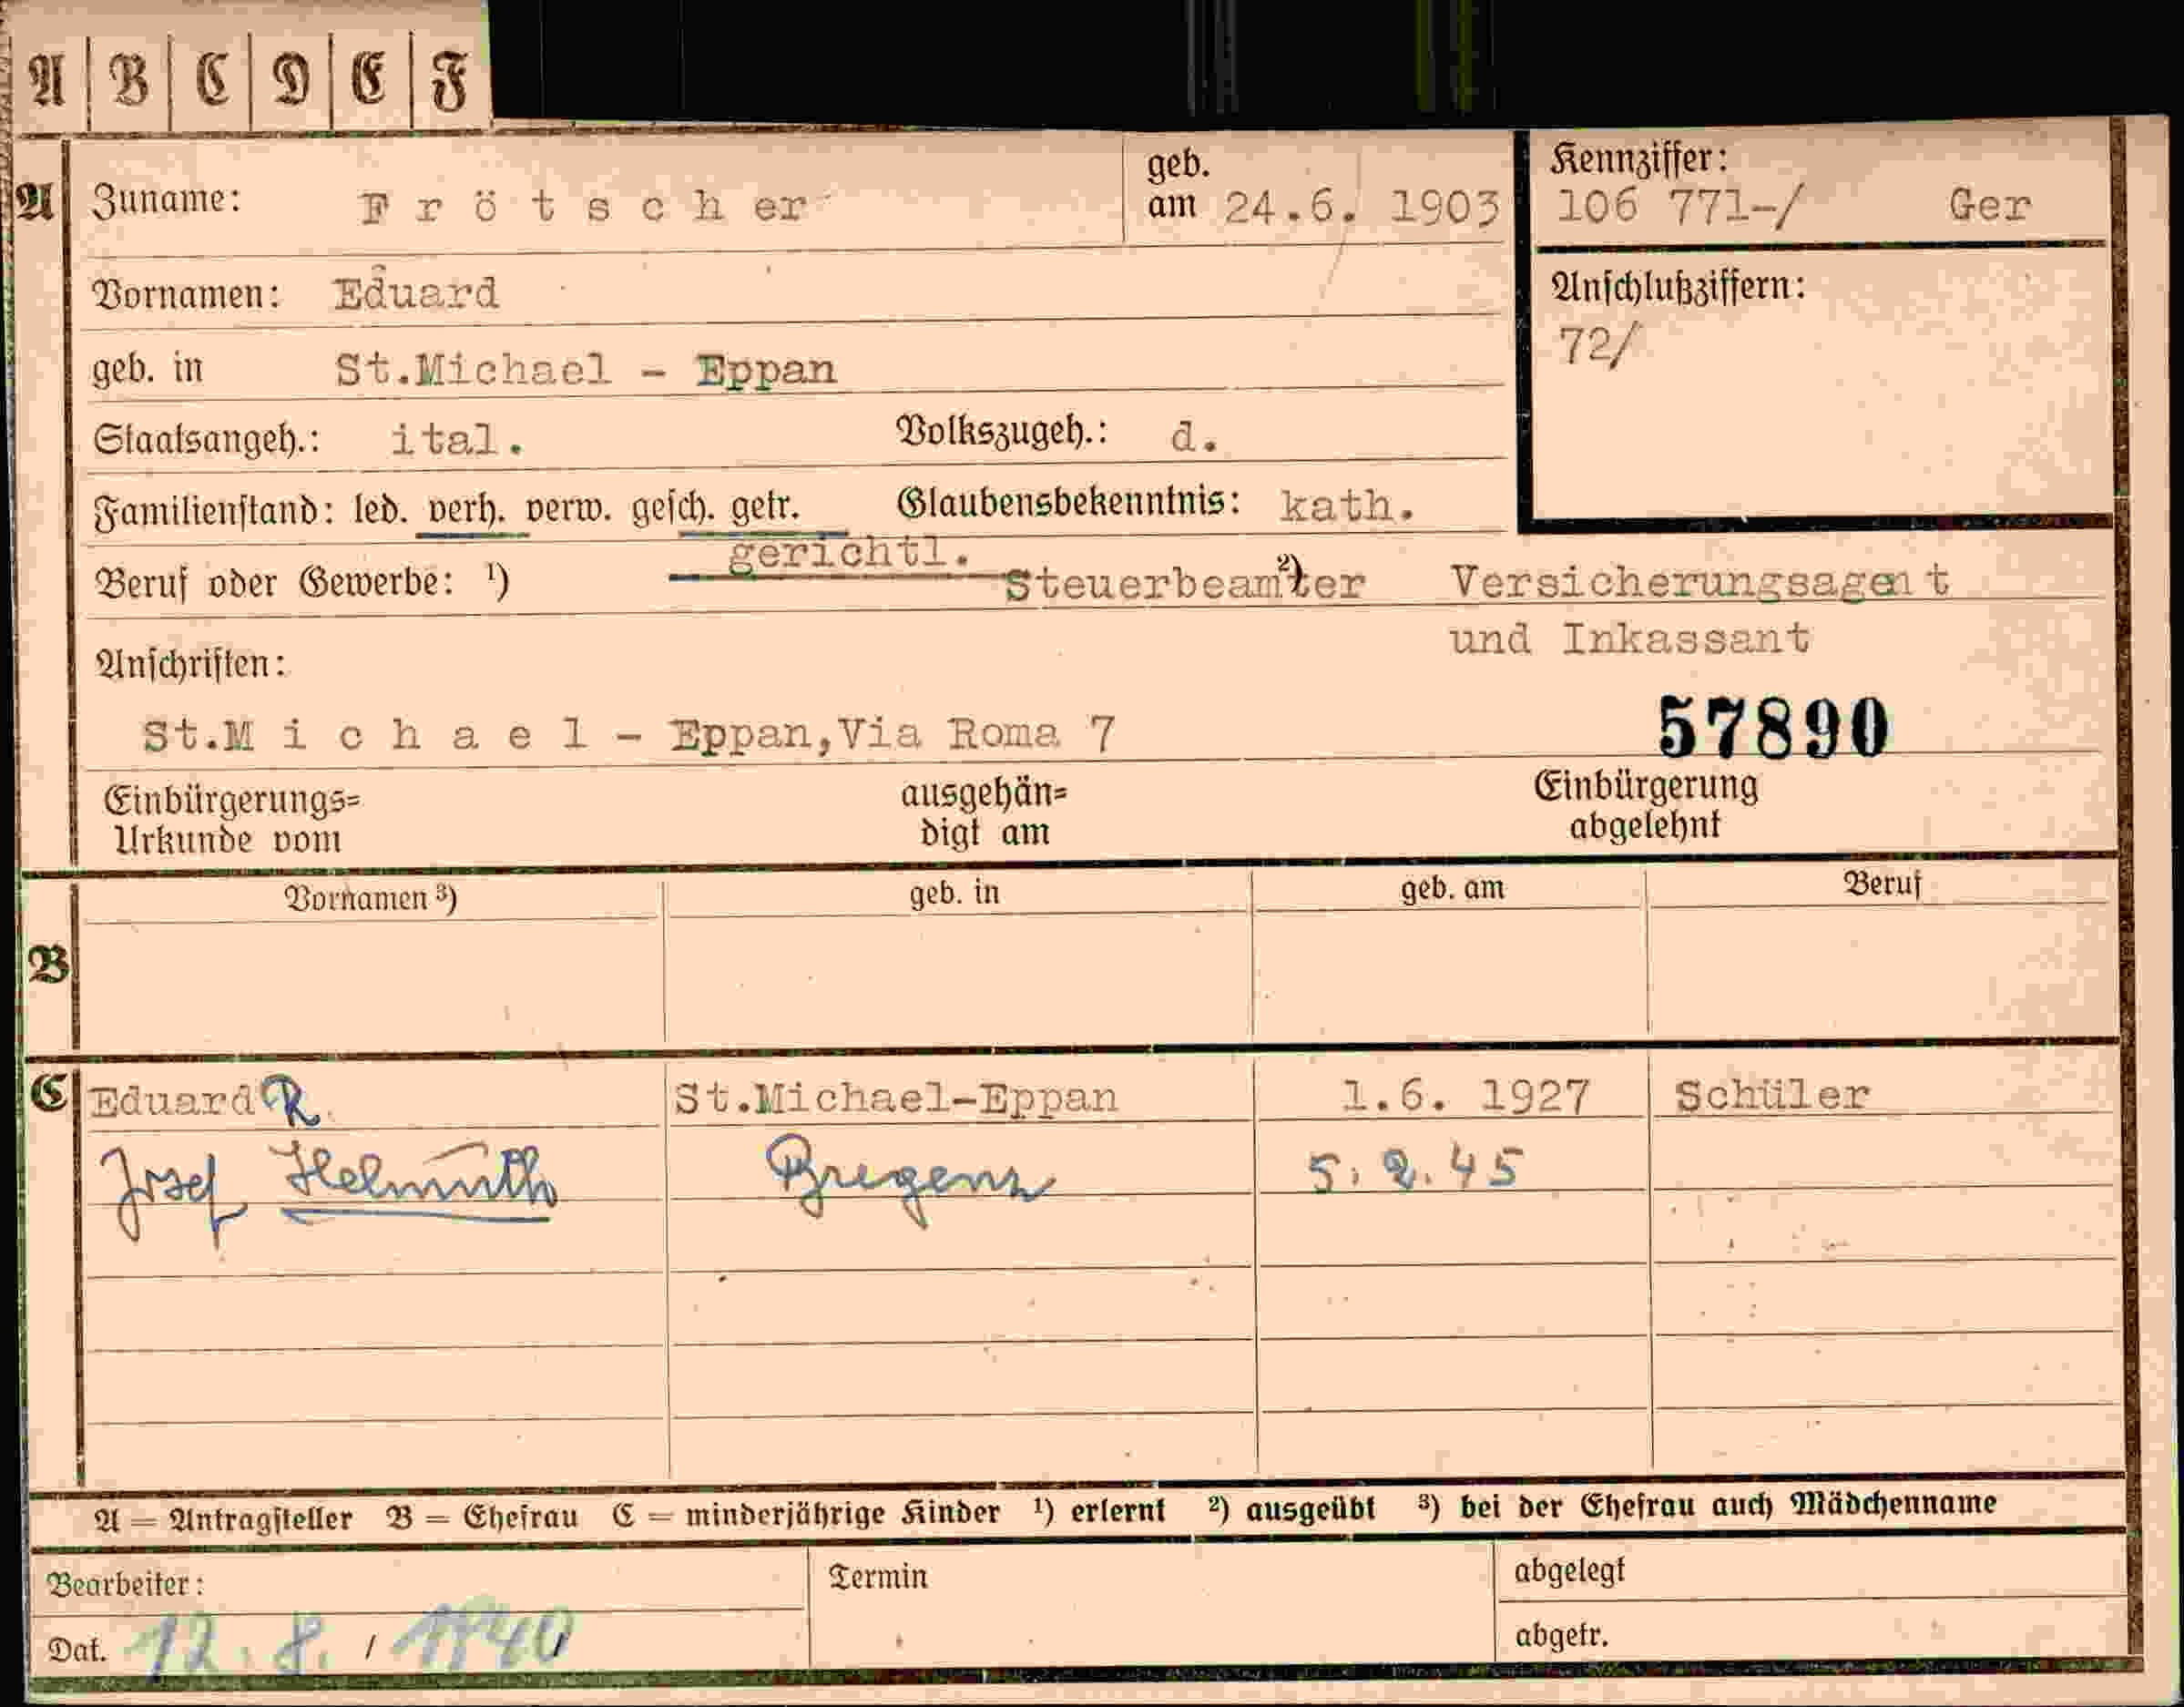 A | B | C | D | E | F
A Zuname: Frötscher geb. am 24.6. 1903
Kennziffer:
106 771-/ Ger
Vornamen: Eduard
Anschlußziffern:
72/
geb. in St.Michael - Eppan
Staatsangeh.: ital. Volkszugeh.: d.
Familienstand: led. verh. verw. gesch. getr. Glaubensbekenntnis: kath.
gerichtl.
Beruf oder Gewerbe: ¹) Steuerbeamter ²) Versicherungsagent
und Inkassant
Anschriften:
St.Michael - Eppan,Via Roma 7
57890
Einbürgerungs= ausgehän= Einbürgerung
Urkunde vom digt am abgelehnt
Vornamen ³) geb. in geb. am Beruf
B
C Eduard R. St.Michael-Eppan 1.6. 1927 Schüler
Josef Helmuth Bregenz 5.2.45
A = Antragsteller B = Ehefrau C = minderjährige Kinder ¹) erlernt ²) ausgeübt ³) bei der Ehefrau auch Mädchenname
Bearbeiter: Termin abgelegt
Dat. 12.8. / 1940 abgetr.